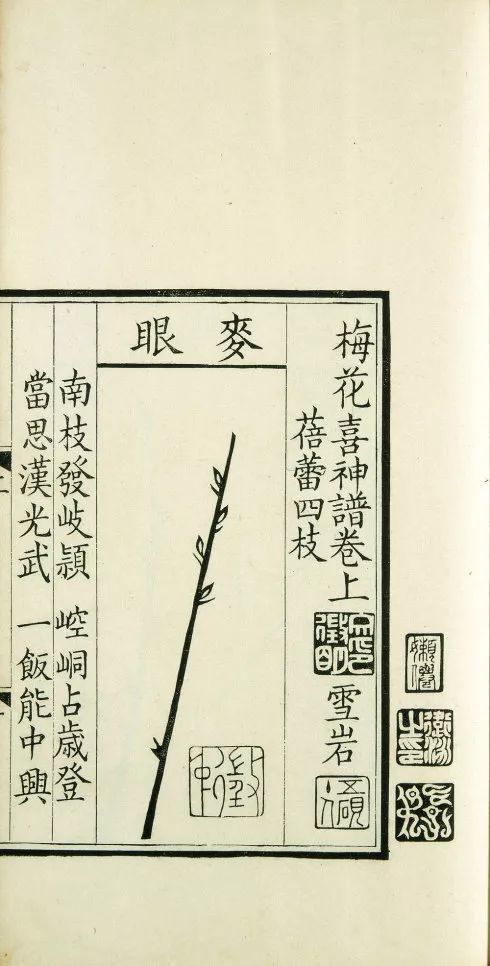 梅花喜神譜卷上
雪岩
蓓蕾四枝
麥眼
南枝發岐頴 崆峒占歲登
當思漢光武 一飯能中興